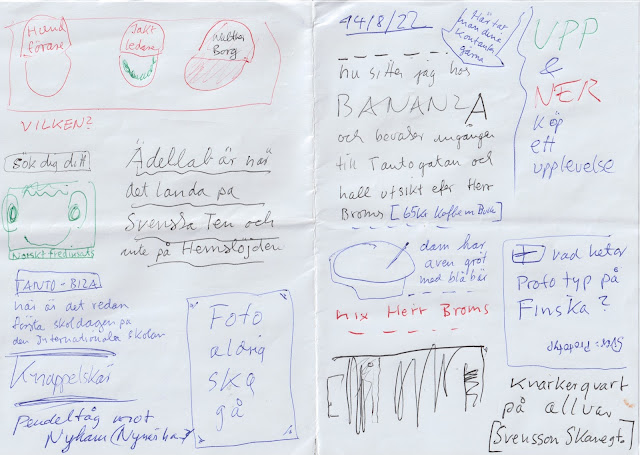 Hund
förare
Jakt
ledare
Walther
Borg
VILKEN?
Sök dig dit
Norskt fredspris
Ädellab är när
det landa på
Svenska Ten och
inte på Hemslöjden
TANTO-BIZA
här är det redan
första skoldagen på
den Internationala skolan
Knappelskär
Pendeltåg mot
Nyham (Nynäsham
Foto
aldrig
ska
gå
14/8/22
Här tar
man dina
kontanter
gärna
nu sitter jag hos
BANANZA
och bevakar ingången
till Tantogatan och
håll utsikt efter Herr
Broms [65kr Kaffe m Bulle]
dom har
även gröt
med blåbär
nix Herr Broms
UPP
&
NER
köp
ett
upplevelse
vad heter
Prototyp på
Finska?
Svar: Prototyyppi
Knarkerqvart
på allvar
[Svensson Skånegt.]